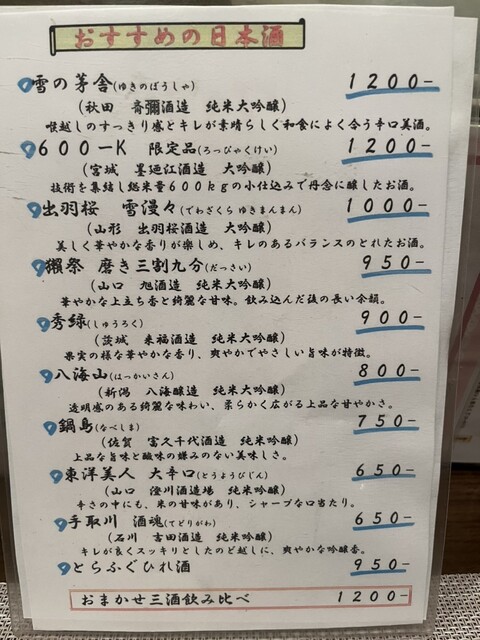 おすすめの日本酒
雪の茅舎(ゆきのぼうしゃ) 1200-
(秋田 齋彌酒造 純米大吟醸)
喉越しのすっきり感とキレが素晴らしく和食によく合う辛口美酒。
600-K 限定品(ろっぴゃくけい) 1200-
(宮城 墨廼江酒造 大吟醸)
技術を集結し総米量600kgの小仕込みで丹念に醸したお酒。
出羽桜 雪漫々(でわざくら ゆきまんまん) 1000-
(山形 出羽桜酒造 大吟醸)
美しく華やかな香りが楽しめ、キレのあるバランスのとれたお酒。
獺祭 磨き三割九分(だっさい) 950-
(山口 旭酒造 純米大吟醸)
華やかな上立ち香と綺麗な甘味。飲み込んだ後の長い余韻。
秀緑(しゅうろく) 900-
(茨城 来福酒造 純米大吟醸)
果実の様な華やかな香り、爽やかでやさしい旨味が特徴。
八海山(はっかいさん) 800-
(新潟 八海醸造 純米大吟醸)
透明感のある綺麗な味わい、柔らかく広がる上品な甘やかさ。
鍋島(なべしま) 750-
(佐賀 富久千代酒造 純米吟醸)
上品な旨味と酸味の嫌みのない美味しさ。
東洋美人 大辛口(とうようびじん) 650-
(山口 澄川酒造場 純米吟醸)
辛さの中にも、米の甘味があり、シャープな口当たり。
手取川 酒魂(てどりがわ) 650-
(石川 吉田酒造 純米吟醸)
キレが良くスッキリとしたのど越しに、爽やかな吟醸香。
とらふぐひれ酒 950-
おまかせ三酒飲み比べ 1200-